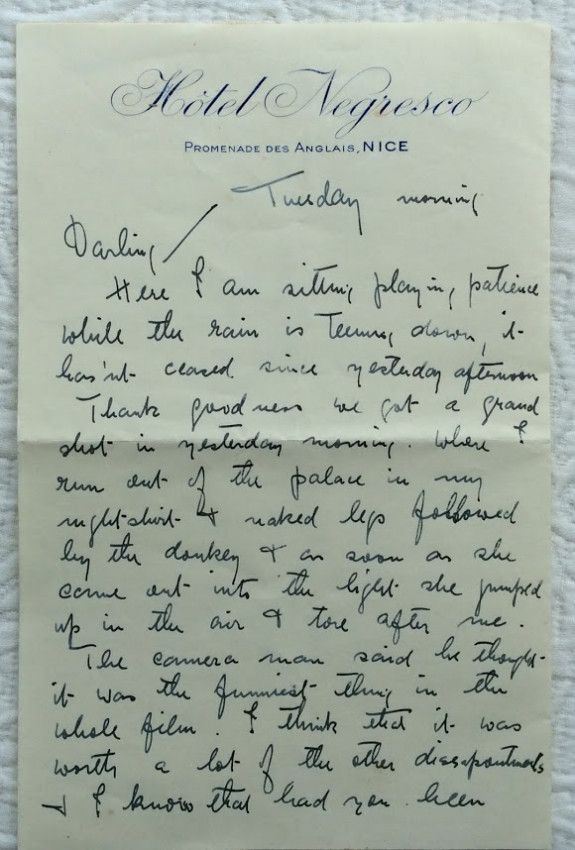 Hôtel Negresco
PROMENADE DES ANGLAIS, NICE
Tuesday morning
Darling/
Here I am sitting playing patience
while the rain is teeming down, it
has'nt ceased since yesterday afternoon
Thank goodness we got a grand
shot in yesterday morning. Where I
run out of the palace in my
nightshirt & naked legs followed
by the donkey & as soon as she
came out into the light she jumped
up in the air & tore after me.
The camera man said he thought
it was the funniest thing in the
whole film. I think that it was
worth a lot of the other dissapointments
& I know that had you been